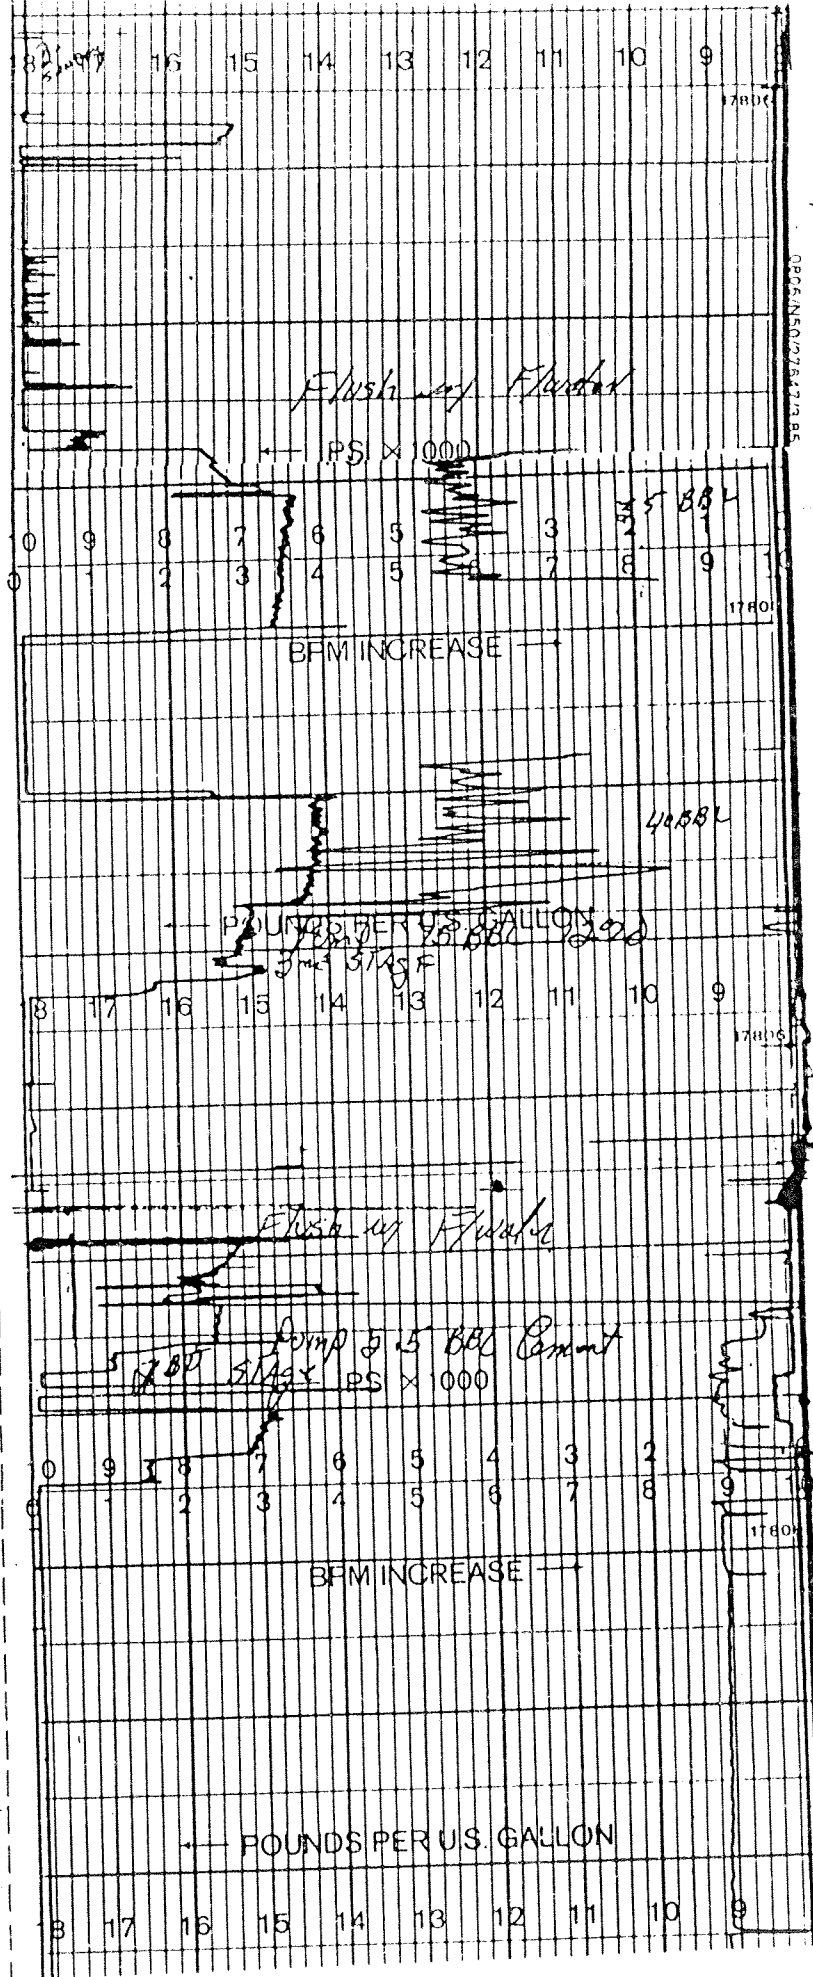 18 17 16 15 14 13 12 11 10 9
17806
Flush w/ F/water
← PSI X 1000
5 BBL
10 9 8 7 6 5 3 2 1
0 1 2 3 4 5 6 7 8 9 10
1780
BPM INCREASE →
40 BBL
← POUNDS PER U.S. GALLON
BBL
STAGE
18 17 16 15 14 13 12 11 10 9
17806
Flush w/ F/water
Pump 2.5 BBL Cement
STAGE PSI X 1000
10 9 8 7 6 5 4 3 2
0 2 3 4 5 6 7 8 9 10
1780
BPM INCREASE →
← POUNDS PER U.S. GALLON
18 17 16 15 14 13 12 11 10 9